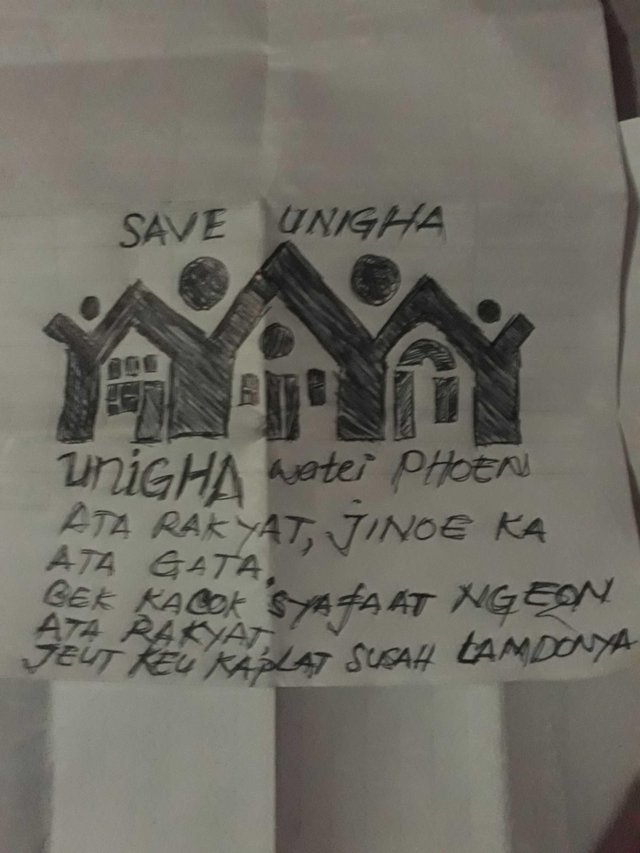 SAVE UNIGHA
UNIGHA watei PHOEN
ATA RAKYAT, JINOE KA
ATA GATA.
BEK KACOK SYAFAAT NGEON
ATA RAKYAT
JEUT KEU KAPLAT SUSAH LAMDONYA